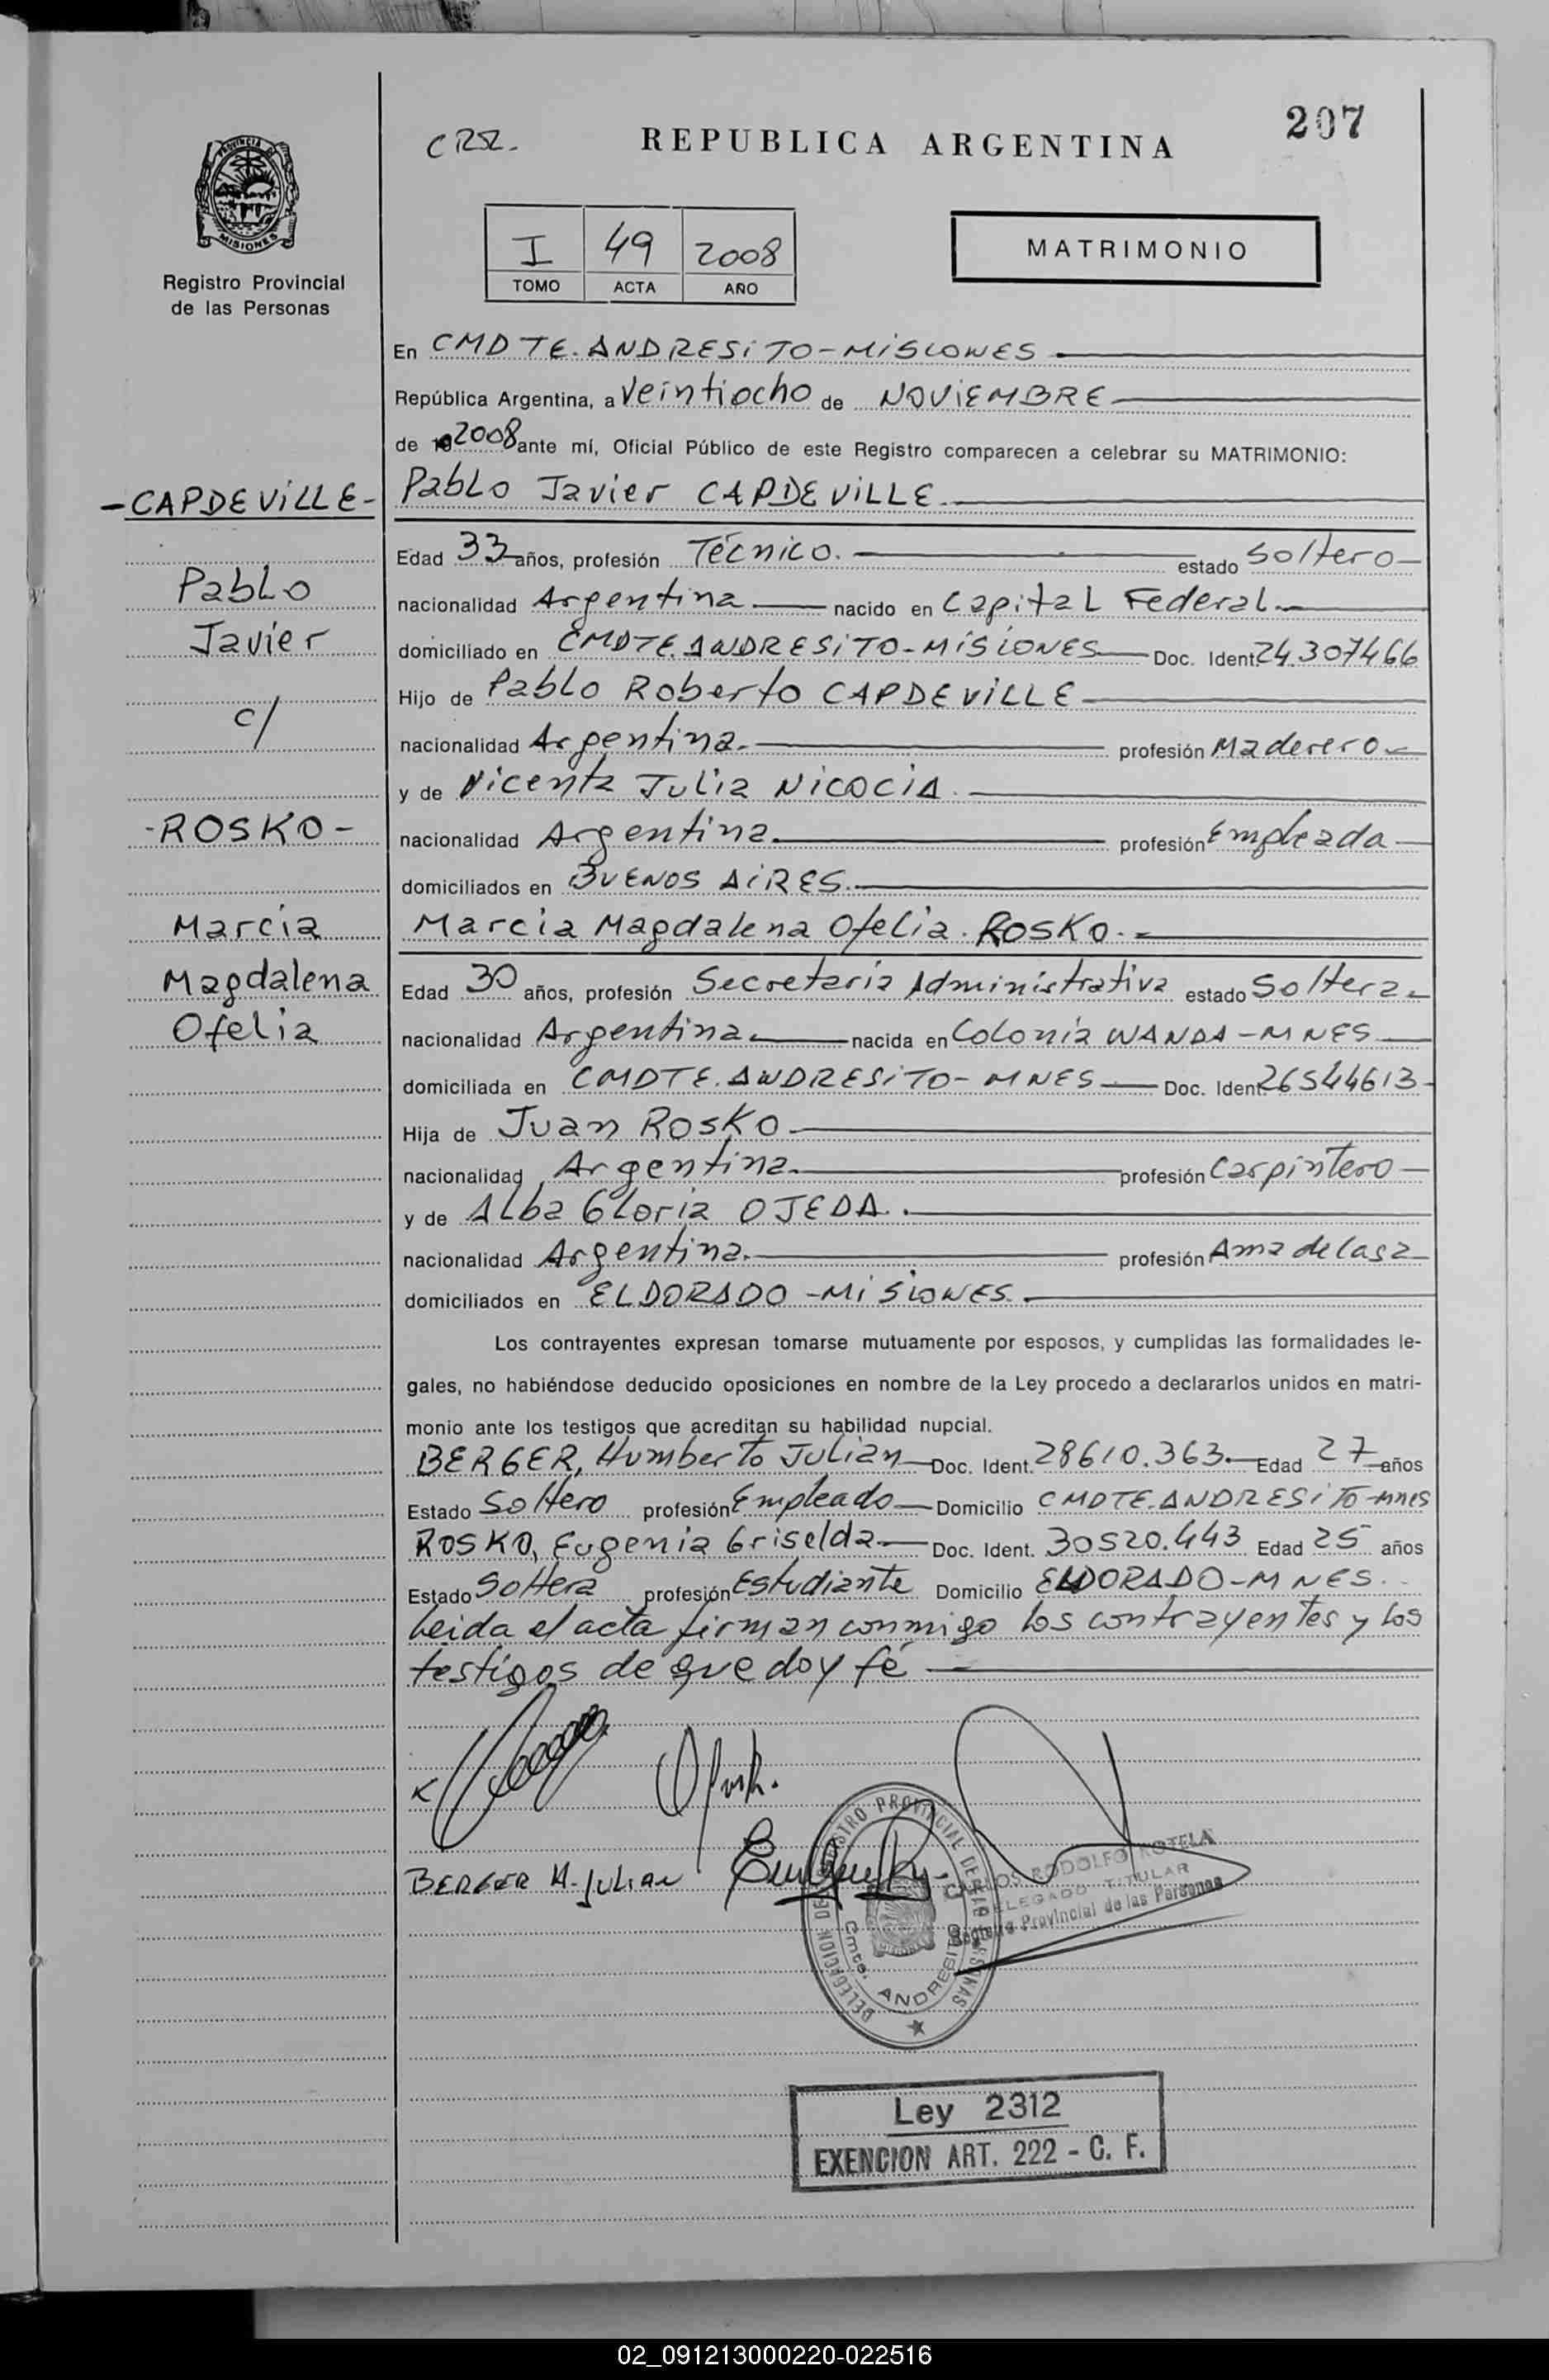 207
CRSZ.
REPUBLICA ARGENTINA
PROVINCIA DE
MISIONES
Registro Provincial
de las Personas
I 49 2008
TOMO ACTA AÑO
MATRIMONIO
En CMDTE. ANDRESiTO - MiSiONES
República Argentina, a Veintiocho de NOViEMBRE
de 19 2008 ante mí, Oficial Público de este Registro comparecen a celebrar su MATRIMONIO:
- CAPDEViLLE - Pablo Javier CAPDEViLLE.
Edad 33 años, profesión Técnico. estado Soltero
Pablo nacionalidad Argentina nacido en Capital Federal.
Javier domiciliado en CMDTE. ANDRESiTO - MiSiONES Doc. Ident. 24.307466
Hijo de Pablo Roberto CAPDEViLLE
c/ nacionalidad Argentina. profesión Maderero
y de Vicenta Julia NiCOCiA.
- ROSKO - nacionalidad Argentina profesión Empleada
domiciliados en BUENOS AiRES.
Marcia Marcia Magdalena Ofelia ROSKO.
Magdalena Edad 30 años, profesión Secretaria Administrativa estado Soltera
Ofelia nacionalidad Argentina nacida en Colonia WANDA - MNES
domiciliada en CMDTE. ANDRESiTO - MNES Doc. Ident. 26544613
Hija de Juan ROSKO
nacionalidad Argentina. profesión Carpintero
y de Alba Gloria OJEDA.
nacionalidad Argentina. profesión Ama de Casa
domiciliados en ELDORADO - MiSiONES.
Los contrayentes expresan tomarse mutuamente por esposos, y cumplidas las formalidades le-
gales, no habiéndose deducido oposiciones en nombre de la Ley procedo a declararlos unidos en matri-
monio ante los testigos que acreditan su habilidad nupcial.
BERGER, Humberto Julian Doc. Ident. 28610.363 Edad 27 años
Estado Soltero profesión Empleado Domicilio CMDTE. ANDRESiTO - MNES
ROSKO, Eugenia Griselda Doc. Ident. 30520.443 Edad 25 años
Estado Soltera profesión Estudiante Domicilio ELDORADO - MNES.
Leida el acta firman conmigo los contrayentes y los
testigos de que doy fé
BERGER H. JULIAN
DELEGACION DE REGISTRO PROVINCIAL DE LAS PERSONAS
Cmte. ANDRESITO
CARLOS RODOLFO ROTELA
DELEGADO TITULAR
Registro Provincial de las Personas
Ley 2312
EXENCION ART. 222 - C. F.
02_091213000220-022516